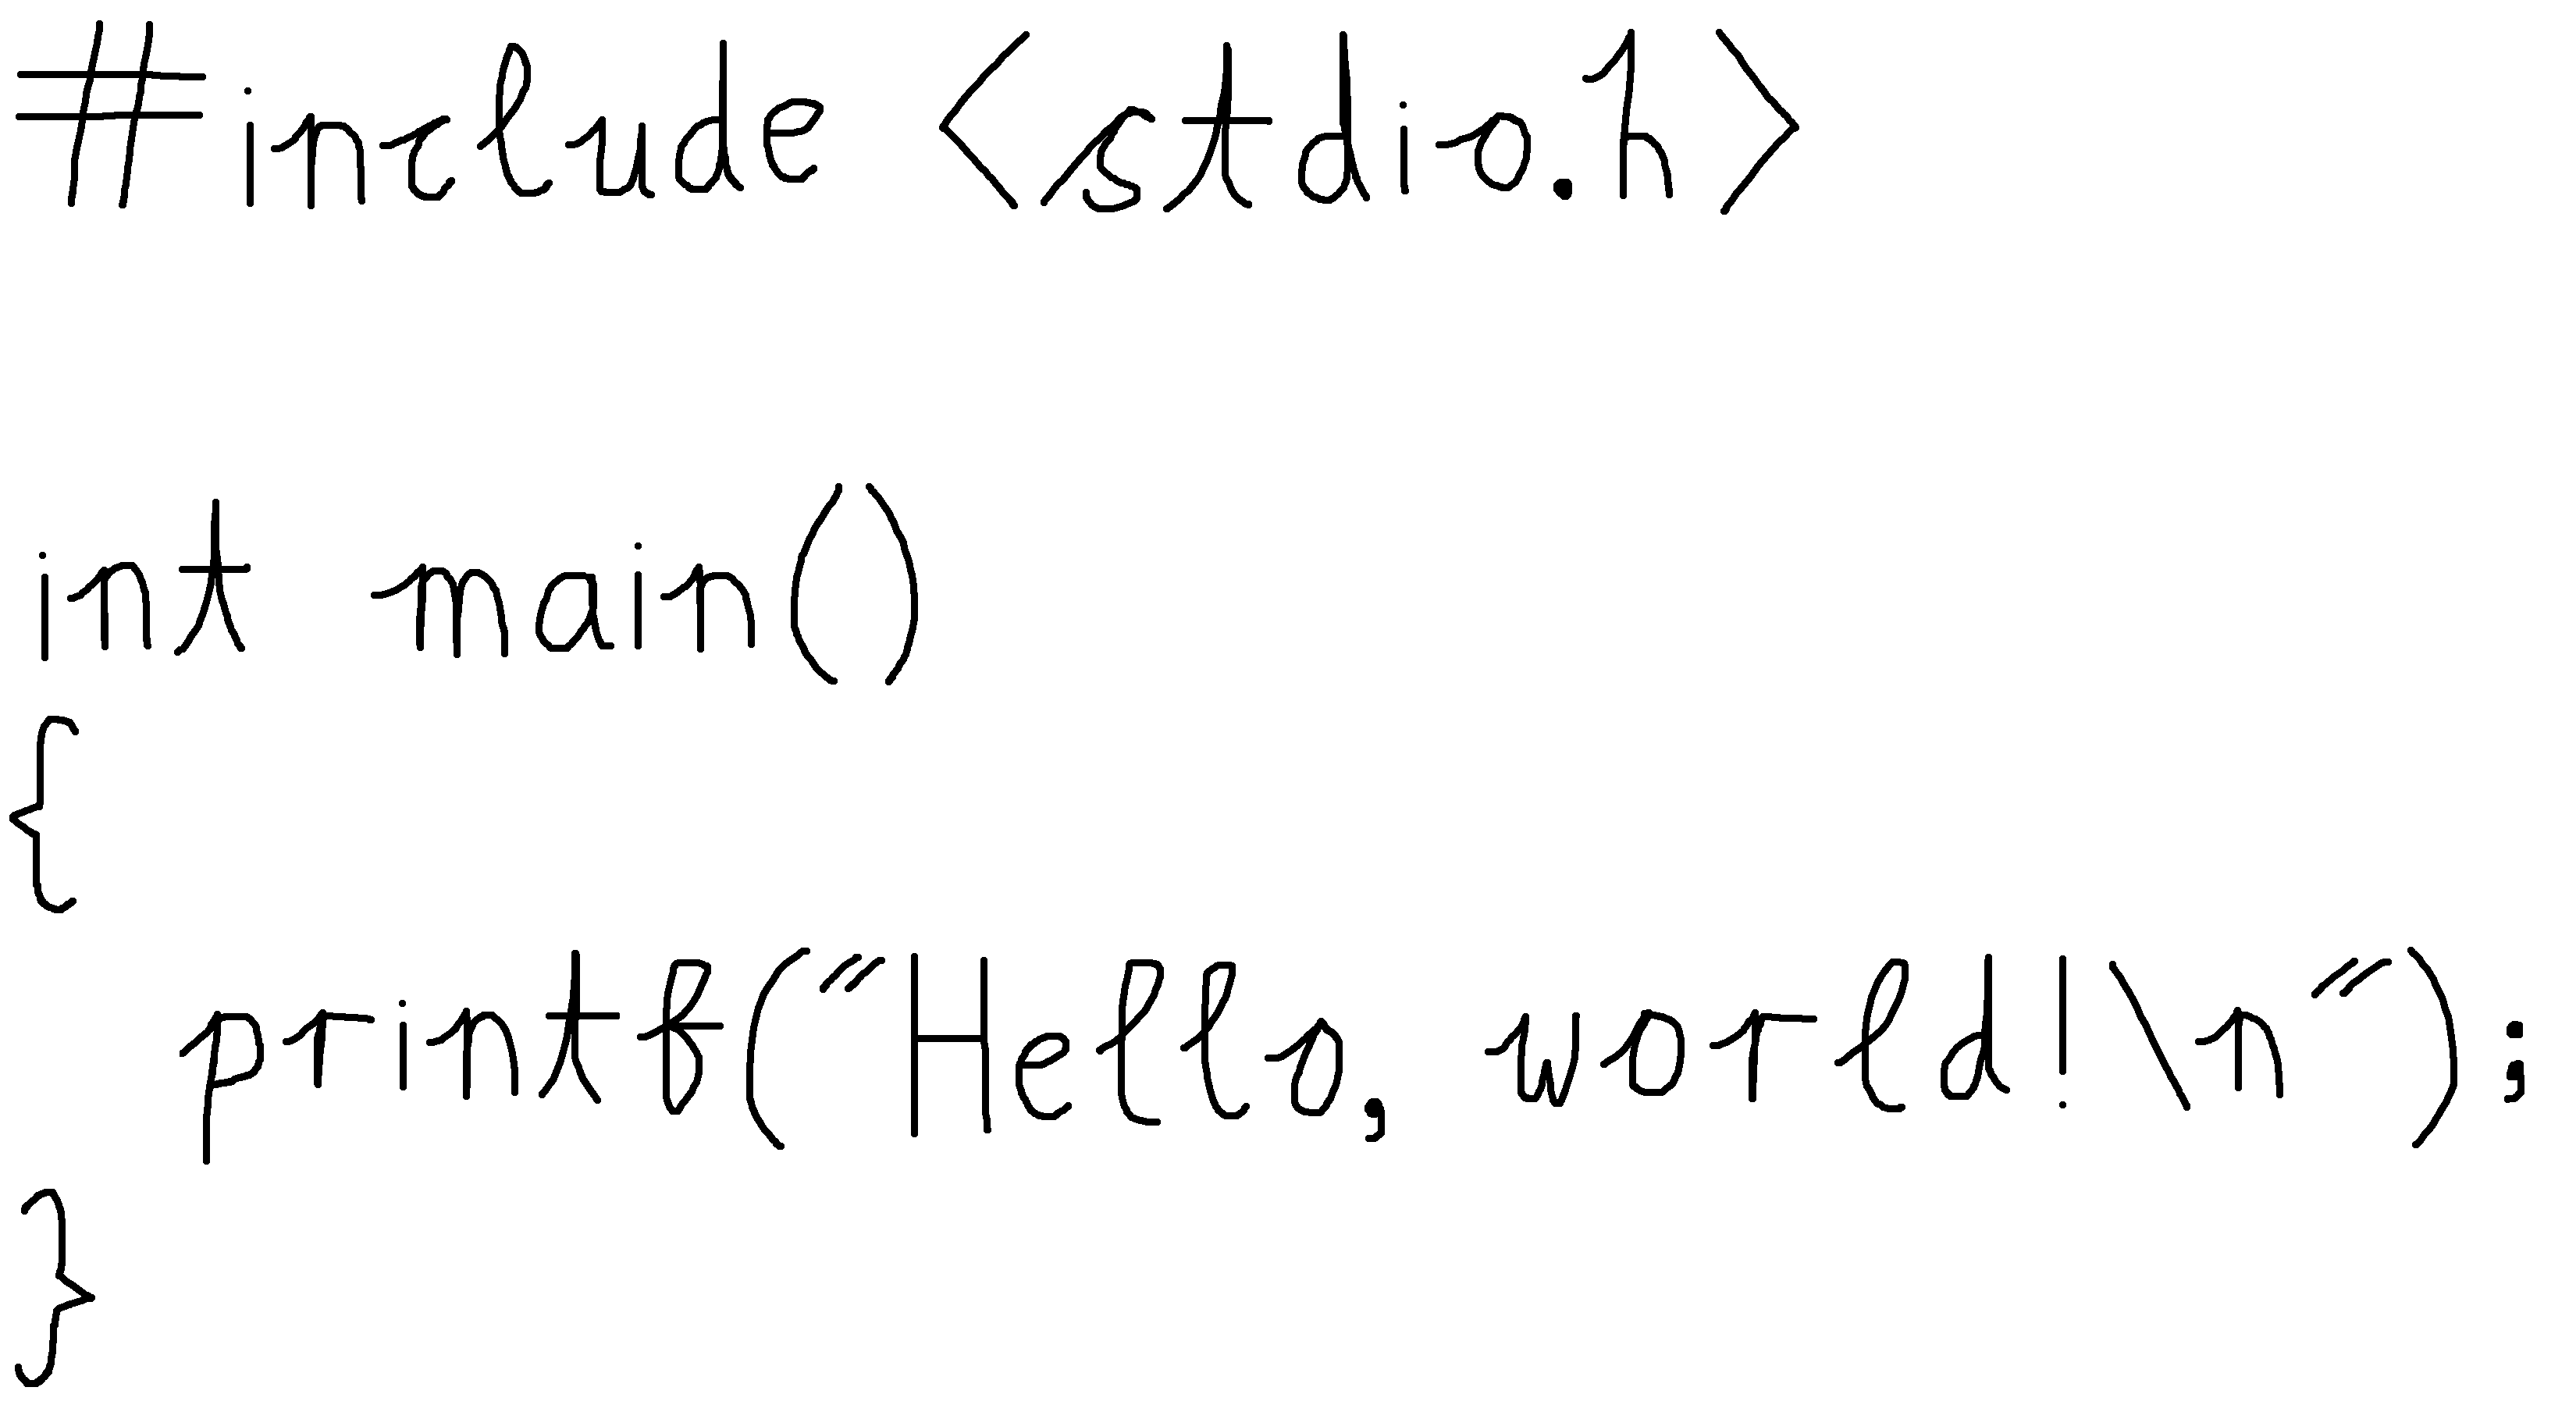 #include <stdio.h>
int main()
{
printf("Hello, world!\n");
}